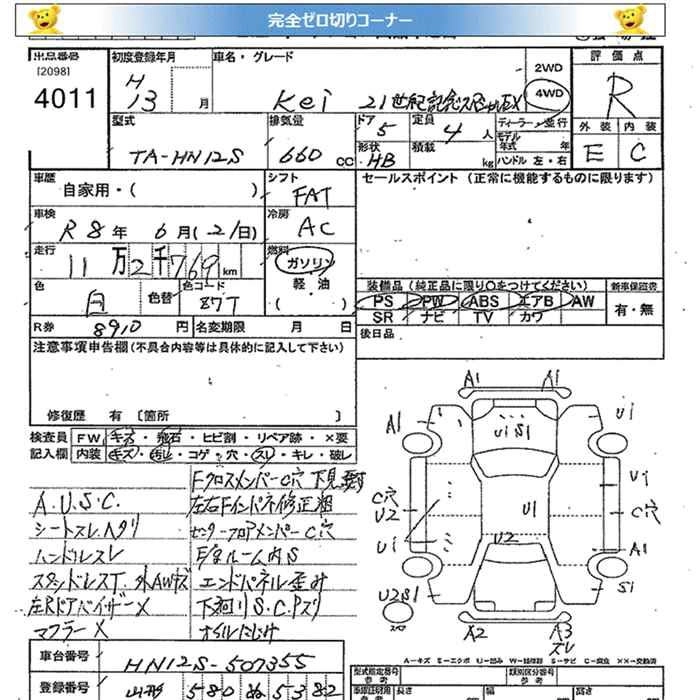 完全ゼロ切りコーナー
出品番号 初度登録年月 車名・グレード 2WD 評価点
[2098] H 4WD R
4011 13 月 Kei 21世紀記念スペシャルEX
型式 排気量 ドア 定員 ディーラー・並行 外装 内装
TA-HN12S 660 CC 5 4 人 モデル年式 年 E C
形状 HB 積載 kg ハンドル 左・右
車歴 シフト セールスポイント (正常に機能するものに限ります)
自家用・( ) FAT
車検 冷房
R8年 6月(21日) AC
走行 燃料
11万2千769km ガソリン
色 色替 色コード 軽・油 装備品 (純正品に限り○をつけてください) 新車保証書
白 87T ( ) PS PW ABS エアB AW 有・無
SR ナビ TV カワ
R券 8910円 名変期限 月 日 後日品
注意事項申告欄 (不具合内容等は具体的に記入して下さい)
修復歴 有 [箇所 ]
検査員 FW キズ・飛石・ヒビ割・リペア跡・×要
記入欄 内装 キズ・汚レ・コゲ・穴・スレ・キレ・破レ
A.U.S.C.
シートスレ.ヘタリ
ハンドルスレ
スタッドレスT. 外AWキズ
左Rドアバイザー×
マフラー×
Fクロスメンバー C穴 下見
左右Fインパネ修正粗
センターフロアメンバー C穴
E/gルーム内S
エンドパネル歪み
下廻りS.C.Pズリ
オイルにじみ
A1 A1
A1 U1 S1 U1
U1
C穴 U2 U1 C穴
U1 U2 A1
U2S1 S1
A2 A3 スレ
A-キズ E-エクボ U-凹み W-補修跡 S-サビ C-腐食 ××-交換済
車台番号 HN12S-507355
型式指定番号 類別区分番号
参考 参考
登録番号 山形 580 ぬ 5382
長さ 幅 高さ